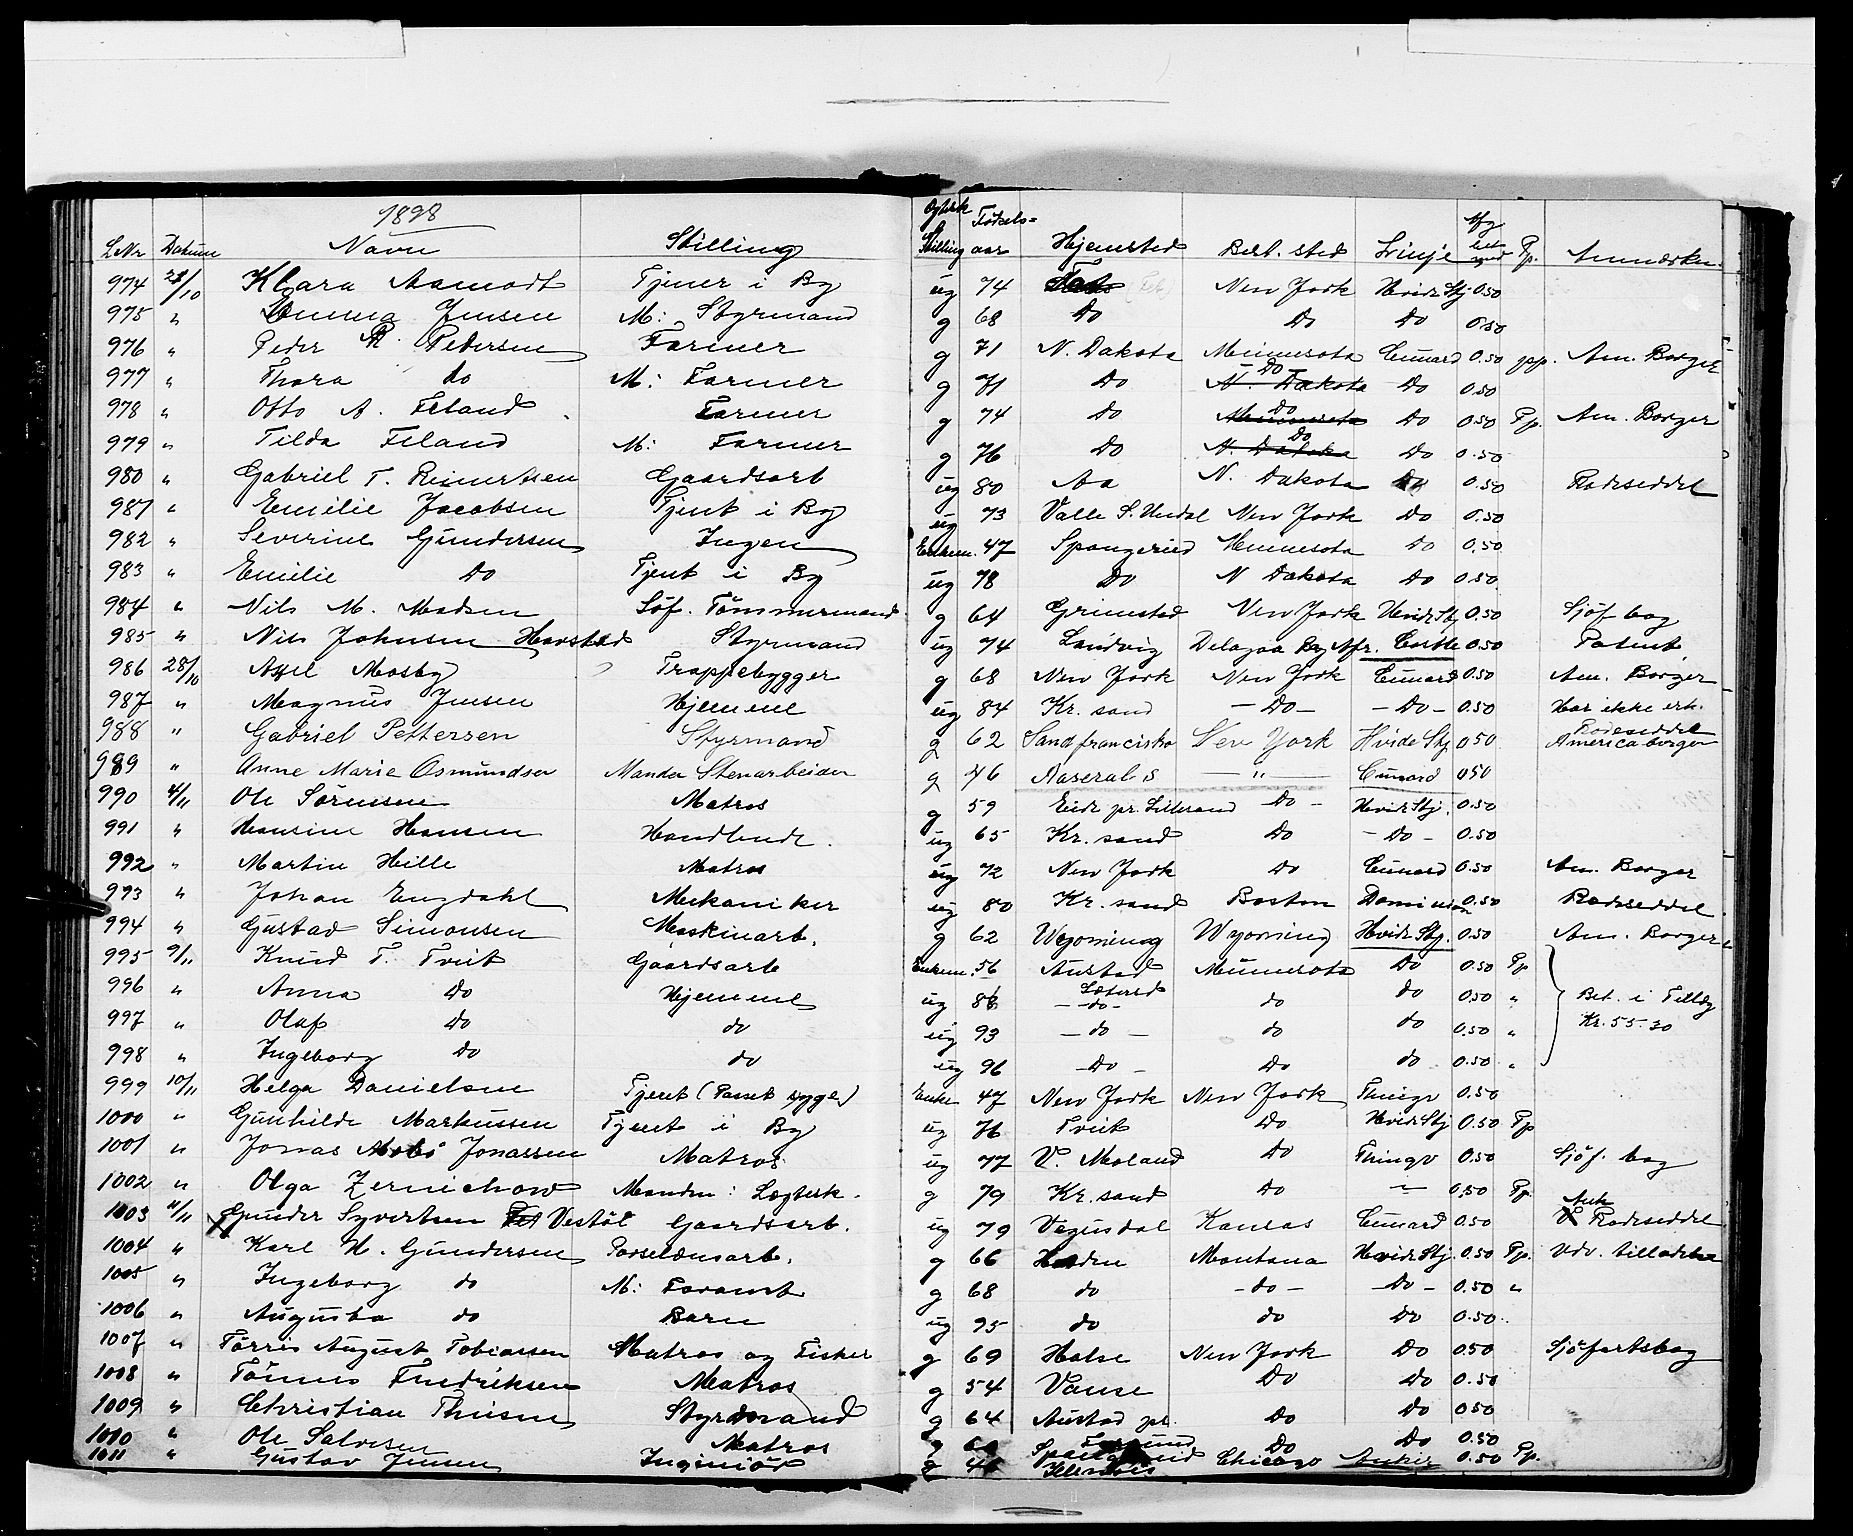 1898
L.Nr Datum Navn Stilling Ægtesk. Stilling Fødsels-aar Hjemsted Best. sted Linje Afg bet med Pp. Anmærkn.
974 28/10 Klara Aamodt Tjener i By ug 74 New York Hvide Stj. 0.50
975 " Jensen M: Styrmand g 68 Do Do Do 0.50
976 " Peder R. Pedersen Farmer g 71 N. Dakota Minnesota Cunard 0.50 pp. Am. Borger
977 " Thora do M: Farmer g 71 Do Do N. Dakota Do 0.50
978 " Otto A. Feland Farmer g 74 Do Do Minnesota Do 0.50 Pp. Am. Borger
979 " Tilda Feland M: Farmer g 76 Do Do N. Dakota Do 0.50
980 " Gabriel T. Reinertsen Gaardsarb ug 80 Aa N. Dakota Do 0.50 Rodeseddel
981 " Emilie Jacobsen Tjent i By ug 73 Valle S. Undal New York Do 0.50
982 " Severine Gundersen Ingen Enkem. 47 Spangereid Minnesota Do 0.50
983 " Emilie Do Tjent i By ug 78 Do N Dakota Do 0.50
984 " Nils M. Madsen Söf. Tömmermand g 64 Grimstad New York Hvide Stj 0.50 Sjöf. bog
985 " Nils Johnsen Havstad Styrmand ug 74 Landvig Delagoa Bay Afr. Castle 0.50 Patent
986 28/10 Axel Mosby Trappebygger g 68 New York New York Cunard 0.50 Am. Borger
987 " Magnus Jensen Hjemme ug 84 Kr. sand - Do - - Do - 0.50 Har ikke erh. Rodeseddel
988 " Gabriel Pettersen Styrmand g 62 Sandfrancisko New York Hvide Stj 0 50 America borger
989 " Anne Marie Osmundsen Manden Stenarbeider g 46 Aaseral S — " — Cunard 0 50
990 4/11 Ole Sörensen Matros g 59 Eide pr. Lillesand Do - Hvide Stj. 0.50
991 " Hansine Hansen Handlende. ug 65 Kr. sand Do - Do - 0.50
992 " Martin Hille Matros ug 72 New York Do Cunard 0.50 Am. Borger
993 " Johan Engdahl Mekaniker ug 80 Kr. sand Boston Dominion 0.50 Rodeseddel.
994 " Gustav Simonsen Maskinarb. g 62 Wyoming Wyoming Hvide Stj. 0.50 Am. Borger
995 9/11 Knud T. Tveit Gaardsarb Enkem. 56 Austad Minnesota Do 0.50 Pp
996 " Anna Do Hjemme ug Sætersd - do - do do 0.50 " Bet. i Tillæg
997 " Olaf Do do ug 93 - do - do do 0.50 " Kr. 55.20
998 " Ingeborg Do do ug 96 - Do - Do do 0.50 "
999 10/11 Helga Danielsen Tjent (Passet syge) Enke 47 New York New York Thingv 0.50
1000 " Gunhilde Markussen Tjent i By ug 76 Tveit Do Hvide Stj 0.50 Pp
1001 " Jonas Jonassen Matros ug 77 V. Moland Do Thingv 0.50 Sjöf. bog
1002 " Olga Zernichow Manden: Lægtesk. g 79 Kr. sand Do — " — 0.50 Pp
1003 11/11 X Gunder Syvertsen Vestöl Gaardsarb. ug 79 Vegusdal Kansas Cunard 0.50 Rodeseddel
1004 " Karl H. Gundersen Porselænsarb. g 66 Montana Hvide Stj. 0.50 Pp. Udv. tilladelse
1005 " Ingeborg do M: Forannt g 68 do - do - - Do - 0.50 "
1006 " Augusta do Barn ug 95 do do Do 0.50
1007 " Törres August Tobiassen Matros og Fisker g 69 Halse New York Do 0.50 Sjöfartsbog
1008 " Tönnes Fredriksen Matros g 54 Vanse Do Do 0.50
1009 " Christian Thiesen Styrmand g 64 Austad pr. Do Do 0.50
1010 " Ole Salvesen Matros g Farsund Spangereid Do Do 0.50
1011 " Gustav Jensen Ingeniör g Illinois Chicago Anker 0.50 Pp.